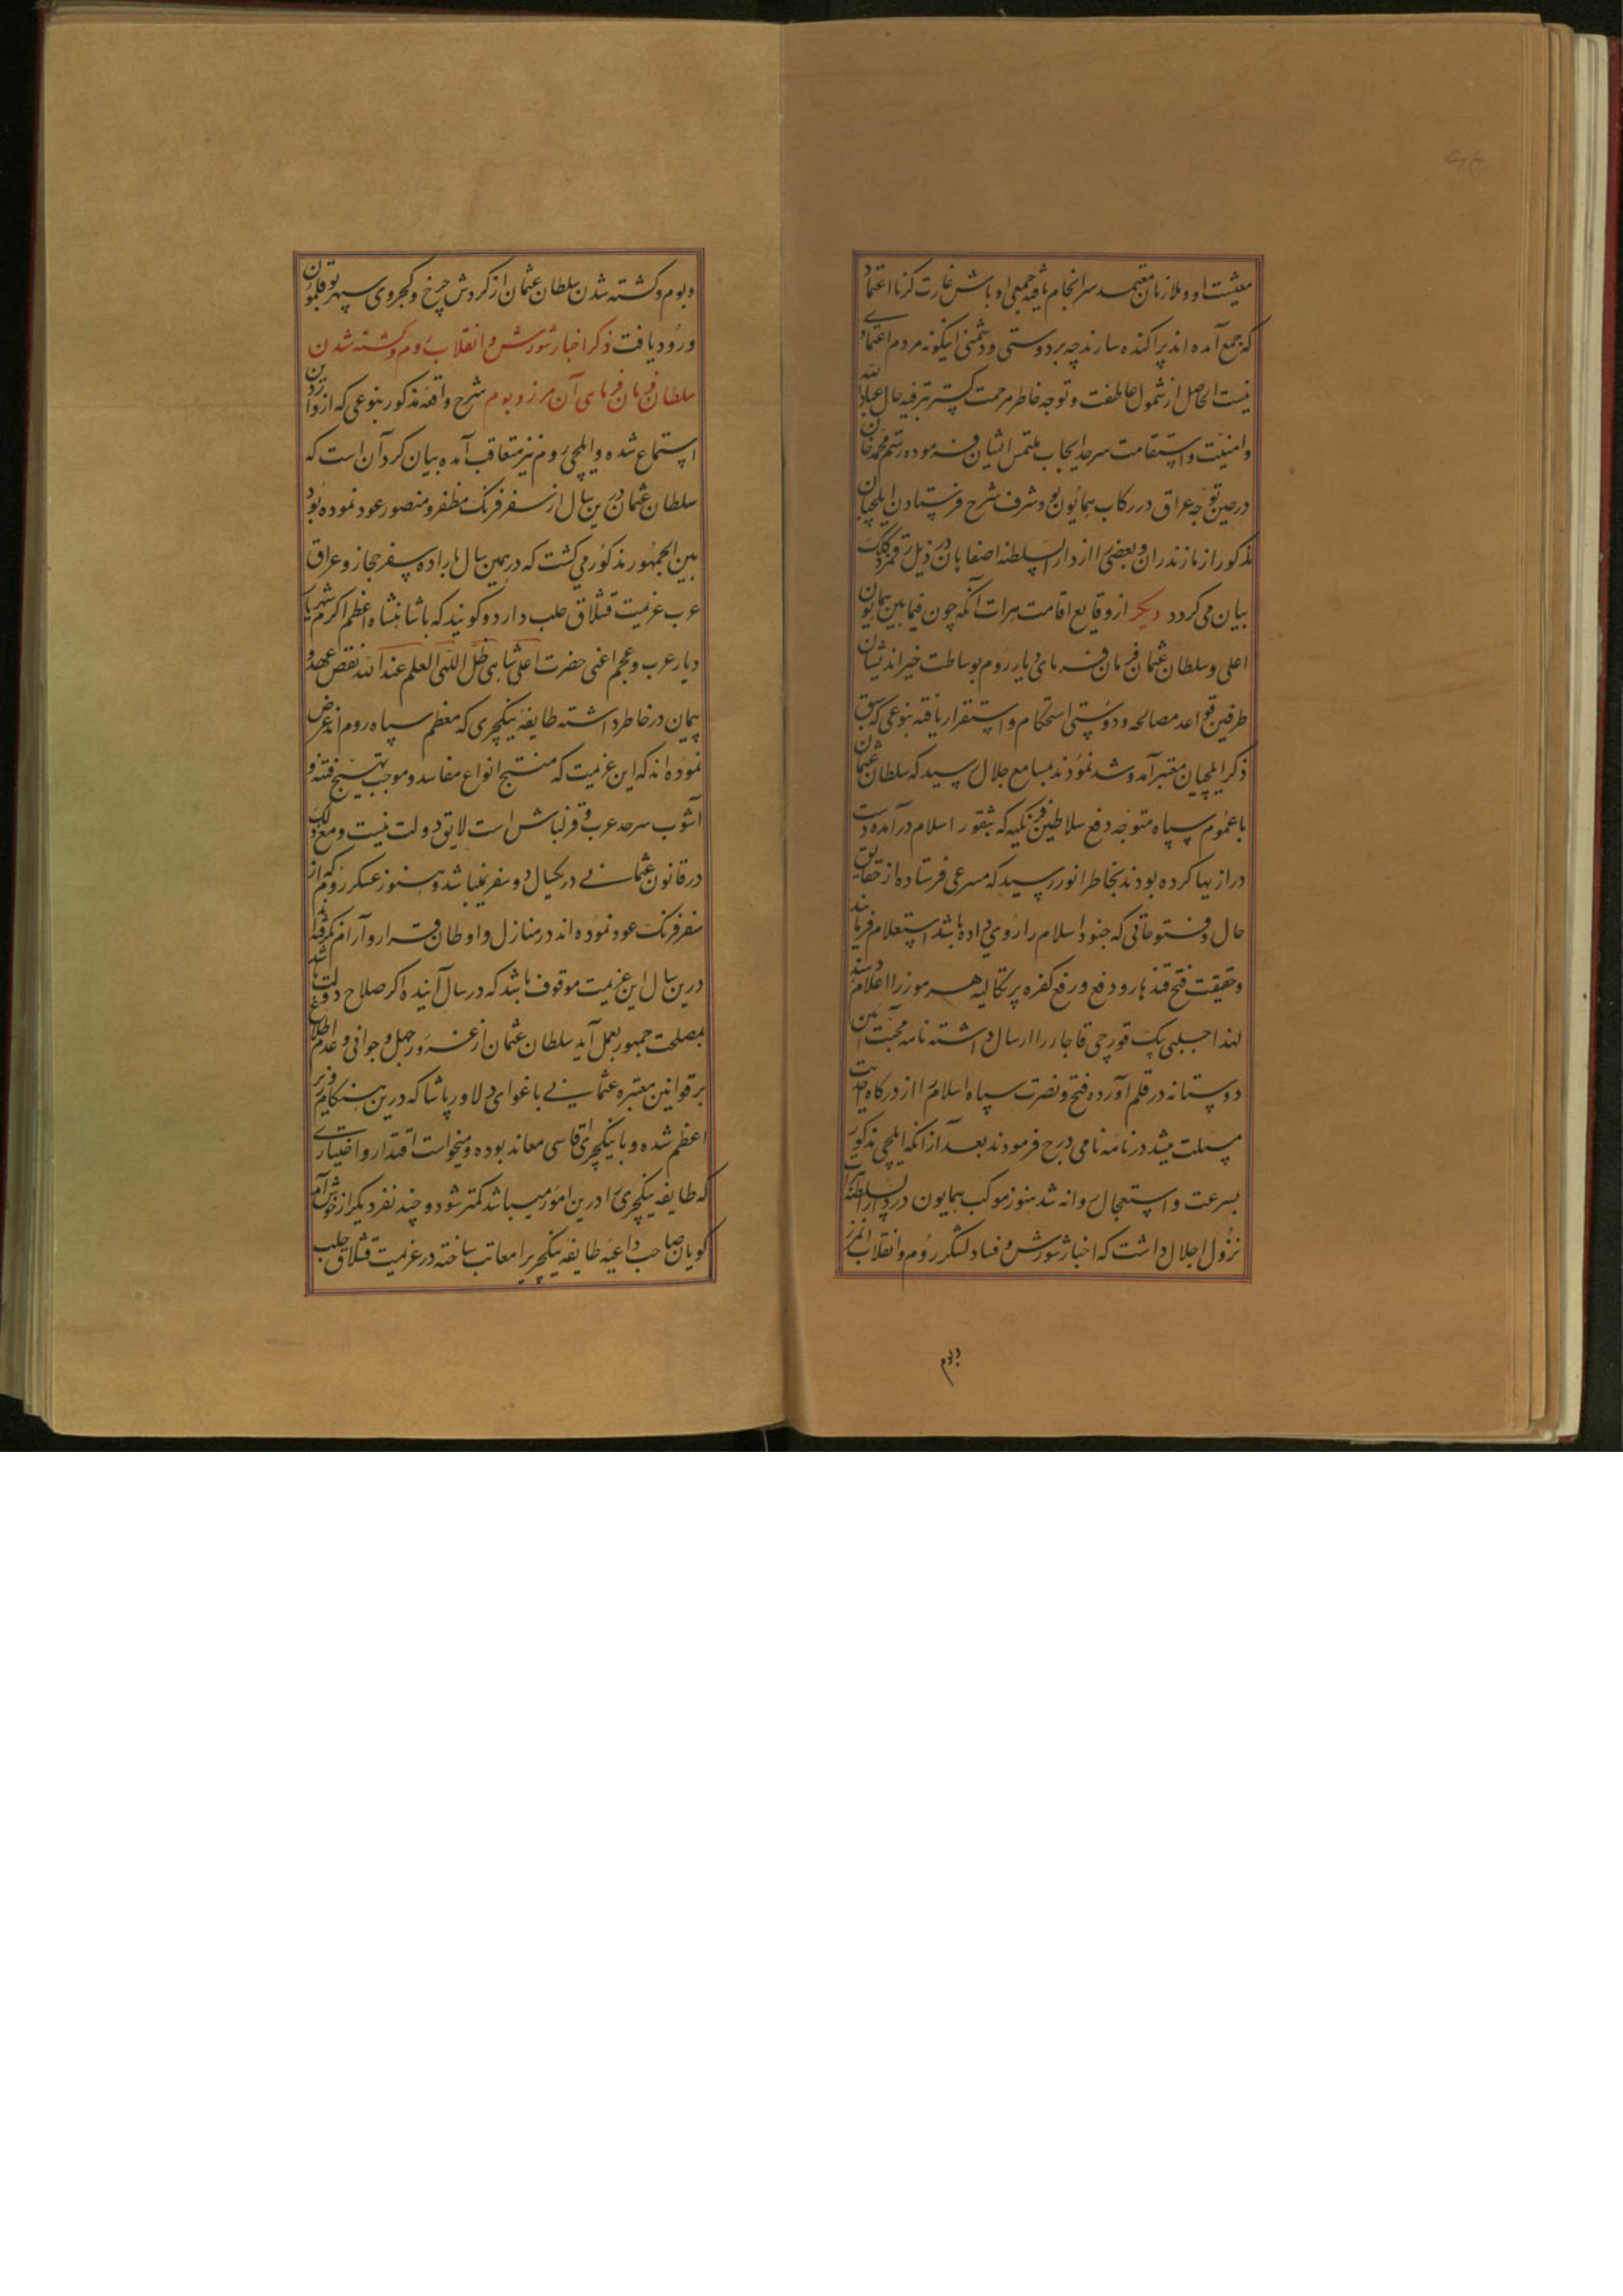 معیشت او و ملازمان معتمد سرانجام یافته جمعی اوباش غارت گر نااعتماد
که جمع آمده اند پراکنده سازند چه بر دوستی و دشمنی اینگونه مردم اعتمادی
نیست الحاصل از شمول عاطفت و توجه خاطر مرحمت گستر ترفیه حال عبادالله
و امنیت و استقامت سرحد ایجاب ملتمس ایشان فرموده رستم محمد خان
در حین توجه عراق در رکاب همایون بود شرف شرح فرستادن ایلچیان
مذکور از مازندران و بعضی را از دارالسلطنه اصفاهان در ذیل رقمزد کلک
بیان می گردد دیگر از وقایع اقامت هرات آنکه چون فیمابین همایون
اعلی و سلطان عثمان فرمان فرمای دیار روم بوساطت خیراندیشان
طرفین قواعد مصالحه و دوستی استحکام و استقرار یافته بنوعی که سبق
ذکر ایلچیان معتبر آمد و شد نمودند بمسامع جلال رسید که سلطان عثمان
با عموم سپاه متوجه دفع سلاطین فرنگیه که بثغور اسلام درآمده دست
درازیها کرده بودند بخاطر انور رسید که مسرعی فرستاده از حقایق
حال و فتوحاتی که جنود اسلام را روی داده باشد استعلام فرمایند
و حقیقت فتح قندهار و دفع و رفع کفره پرتکالیه هرموز را اعلام دهند
لهذا حسنعلی بیک قورچی قاجار را ارسال داشته نامه محبت آیین
دوستانه در قلم آورده فتح و نصرت سپاه اسلام را از درگاه احدیت
مسئلت میشد در نامه نامی درج فرمودند بعد از آنکه ایلچی مذکور
بسرعت و استعجال روانه شد هنوز موکب همایون در دارالسلطنه هرات
نزول اجلال داشت که اخبار شورش و فساد لشکر روم و انقلاب آنمرز
و بوم
و بوم و کشته شدن سلطان عثمان از گردش چرخ و کجروی سپهر بوقلمون
ورود یافت ذکر اخبار شورش و انقلاب روم و کشته شدن
سلطان فرمان فرمای آن مرز و بوم شرح واقعه مذکور بنوعی که از واردین
استماع شده و ایلچی روم نیز متعاقب آمده بیان کرد آن است که
سلطان عثمان درین سال از سفر فرنگ مظفر و منصور عود نموده بود
بین الجمهور مذکور می گشت که در همین سال اراده سفر حجاز و عراق
عرب عزمیت قشلاق حلب دارد و گویند که با شاهنشاه اعظم اکرم شهریار
دیار عرب و عجم اعنی حضرت اعلی شاهی ظل اللهی العلم عند الله نقض عهد و
پیمان در خاطر داشته طایفه ینکچری که معظم سپاه روم اند عرض
نموده اند که این عزیمت که منتج انواع مفاسد و موجب تهییج فتنه و
آشوب سرحد عرب و قزلباش است لایق دولت نیست و مع ذلک
در قانون عثمانی در یکسال دو سفر نمیباشد و هنوز عسکر روم که از
سفر فرنگ عود نموده اند در منازل و اوطان قرار و آرام نگرفته اند
درین سال این عزیمت موقوف باشد که در سال آینده اگر صلاح دولت باشد
بمصلحت جمهور بعمل آید سلطان عثمان از غرور جهل و جوانی و عدم اطلاع
بر قوانین معتبره عثمانی باغوای دلاور پاشا که درین هنگام وزیر
اعظم شده و با ینکچری آقاسی معاند بوده و میخواست اقتدار و اختیاری
که طایفه ینکچری را درین امور میباشد کمتر شود و چند نفر دیگر از خوش آمد
گویان صاحب داعیه طایفه ینکچریرا معاتب ساخته در عزمیت قشلاق حلب